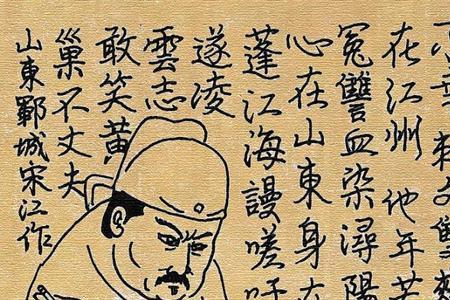 刺文雙頰
在江州他年若
冤讐血染潯陽
心在山東身在
蓬江海謾嗟吁
遂凌
雲志
敢笑黃
巢不丈夫
山東鄆城宋江作